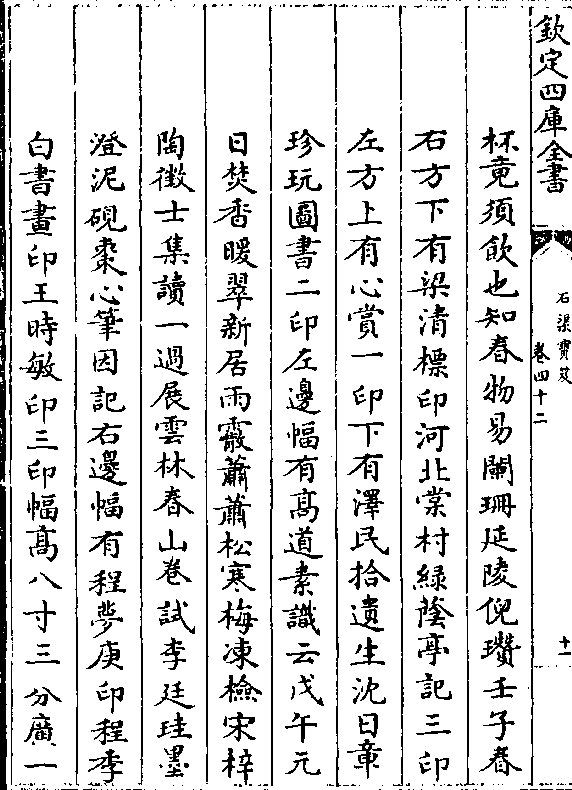 欽定四庫全書
石渠寶笈
卷四十二
十一
杯竟須飲也知春物易闌珊延陵倪瓚壬子春
右方下有梁清標印河北棠村綠蔭亭記三印
左方上有心賞一印下有澤民拾遺生沈日章
珍玩圖書二印左邊幅有髙道素識云戊午元
日焚香暖翠新居雨霰蕭蕭松寒梅凍檢宋梓
陶徴士集讀一過展雲林春山卷試李廷珪墨
澄泥硯棗心筆因記右邊幅有程夢庚印程季
白書畫印王時敏印三印幅髙八寸三分廣一